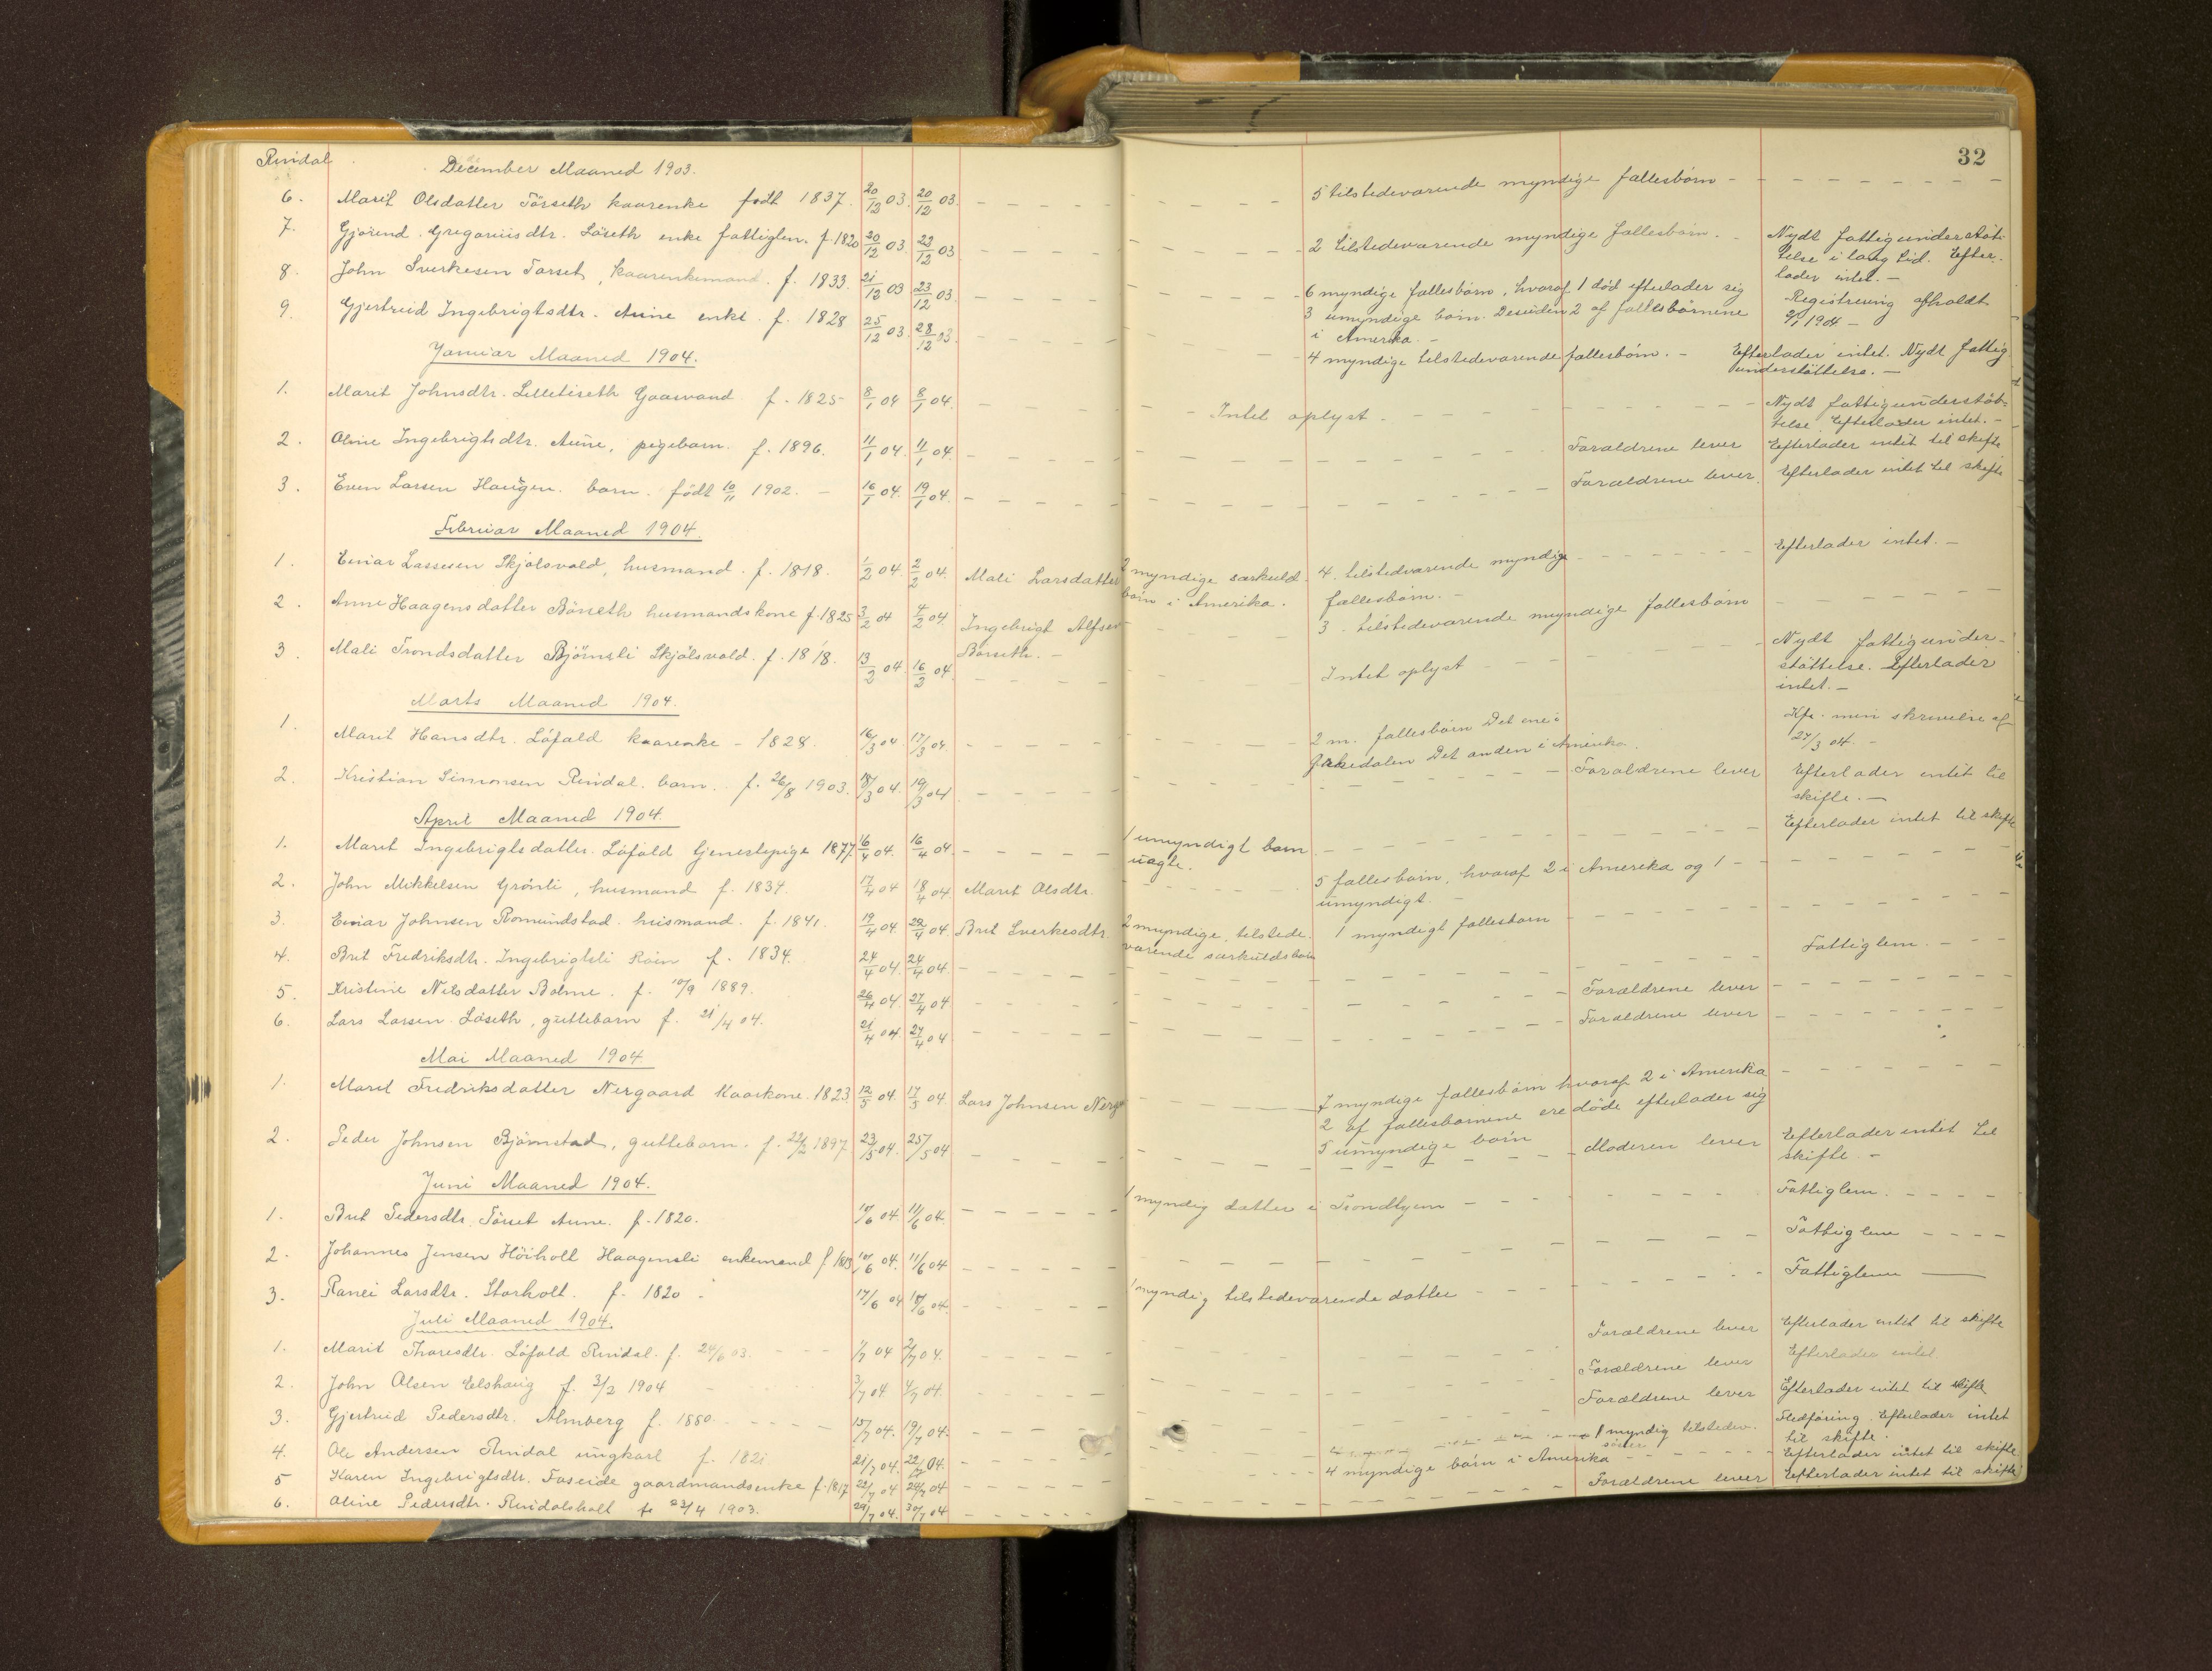 32
Rindal
December Maaned 1903.
6. Marit Olsdatter Törseth kaarenke födt 1837. 20/12 03. 20/12 03. 5 tilstedeværende myndige fællesbörn
7. Gjörend Gregoriusdtr. Löseth enke fattiglem. f. 1820 20/12 03 23/12 03 2 tilstedeværende myndige fællesbörn. Nydt fattigunderstöt-
telse i lang tid. Efter-
lader intet.
8. John Sverkesen Torset, kaarenkemand. f. 1833. 21/12 03 23/12 03. 6 myndige fællesbörn, hvoraf 1 död efterlader sig
3 umyndige börn. Desuden 2 af fællesbörnene
i Amerika.
Registrering afholdt
9/1 1904
9. Gjertrud Ingebrigtsdtr. Aune enke f. 1828 25/12 03 28/12 03. 4 myndige tilstedeværende fællesbörn. Efterlader intet. Nydt fattig
understöttelse.
Januar Maaned 1904.
1. Marit Johnsdtr. Lilletiseth Gaasvand f. 1825 8/1 04 8/1 04. Intet oplyst Nydt fattigunderstöt-
telse. Efterlader intet.
2. Oline Ingebrigtsdtr. Aune, pigebarn. f. 1896. 11/1 04. 11/1 04. Forældrene lever Efterlader intet til skifte
3. Even Larsen Haugen. barn. födt 10/11 1902. 16/1 04. 19/1 04. Forældrene lever. Efterlader intet til skifte
Februar Maaned 1904.
1. Einar Lassesen Skjölsvold, husmand. f. 1818. 1/2 04. 2/2 04. Mali Larsdatter 2 myndige særkuld
börn i Amerika. 4 tilstedværende myndige
fællesbörn. Efterlader intet.
2. Anne Haagensdatter Börseth husmandskone f. 1825 3/2 04 4/2 04. Ingebrigt Alfsen
Börseth. 3 tilstedeværende myndige fællesbörn
3. Mali Trondsdatter Björnsli Skjölsvold. f. 1818. 13/2 04 16/2 04. Intet oplyst Nydt fattigunder-
stöttelse. Efterlader
intet.
Marts Maaned 1904.
1. Marit Hansdtr. Löfald kaarenke 1828. 16/3 04. 17/3 04. 2 m. fællesbörn Det ene i
Orkedalen Det anden i Amerika. Kfr. min skrivelse af
27/3 04.
2. Kristian Simonsen Rindal. barn. f. 26/8 1903. 18/3 04. 19/3 04 Forældrene lever Efterlader intet til
skifte.
April Maaned 1904.
1. Marit Ingebrigtsdatter Löfald tjenestepige 1877. 16/4 04. 16/4 04. 1 umyndigt barn
uægte. Efterlader intet til skifte
2. John Mikkelsen Grönli, husmand f. 1834. 17/4 04 18/4 04. Marit Olsdtr. 5 fællesbörn, hvoraf 2 i Amerika og 1
umyndigt.
3. Einar Johnsen Romundstad husmand. f. 1841. 19/4 04. 22/4 04. Brit Sverkesdtr. 2 myndige, tilstede-
værende særkuldsbörn 1 myndigt fællesbarn
4. Brit Fredriksdtr. Ingebrigtsli Röen f. 1834. 24/4 04. 24/4 04. Fattiglem.
5. Kristine Nilsdatter Bolme. f. 10/9 1889. 26/4 04. 27/4 04 Forældrene lever
6. Lars Larsen Löseth, guttebarn f. 21/4 04. 21/4 04. 27/4 04 Forældrene lever
Mai Maaned 1904
1. Marit Fredriksdatter Nergaard kaarkone 1823 12/5 04. 17/5 04. Lars Johnsen 7 myndige fællesbörn hvoraf 2 i Amerika
2 af fællesbörnene ere döde efterlader sig
5 umyndige börn
2. Peder Johnsen Björnstad, guttebarn. f. 22/2 1897 23/5 04. 25/5 04 Moderen lever Efterlader intet til
skifte.
Juni Maaned 1904.
1. Brit Pedersdtr. Törset Aune. f. 1820. 10/6 04. 11/6 04. 1 myndig datter i Trondhjem Fattiglem.
2. Johannes Jensen Höiholt Haagensli enkemand 10/6 04. 11/6 04 Fattiglem
3. Ranei Larsdtr. Storholt. f. 1820 17/6 04 18/6 04. 1 myndig tilstedeværende datter Fattiglem
Juli Maaned 1904.
1. Marit Thoresdtr. Löfald Rindal f. 24/6 03. 1/7 04 2/7 04. Forældrene lever Efterlader intet til skifte
2. John Olsen Elshaug f. 3/2 1904 3/7 04 4/7 04. Forældrene lever Efterlader intet.
3. Gjertrud Pedersdtr. Almberg f. 1880. 15/7 04. 19/7 04. Forældrene lever Efterlader intet til skifte
4. Ole Andersen Rindal ungkarl f. 1821 21/7 04. 22/7 04. 1 myndig tilstedev.
söster Fledföring. Efterlader intet
til skifte.
5 Karen Ingebrigtsdtr. Faseide gaardmandsenke f. 1817 22/7 04 24/7 04 4 myndige börn i Amerika Efterlader intet til skifte
6. Oline Pedersdtr. Rindalsholt f. 23/4 1903. 29/7 04. 30/7 04 Forældrene lever Efterlader intet til skifte